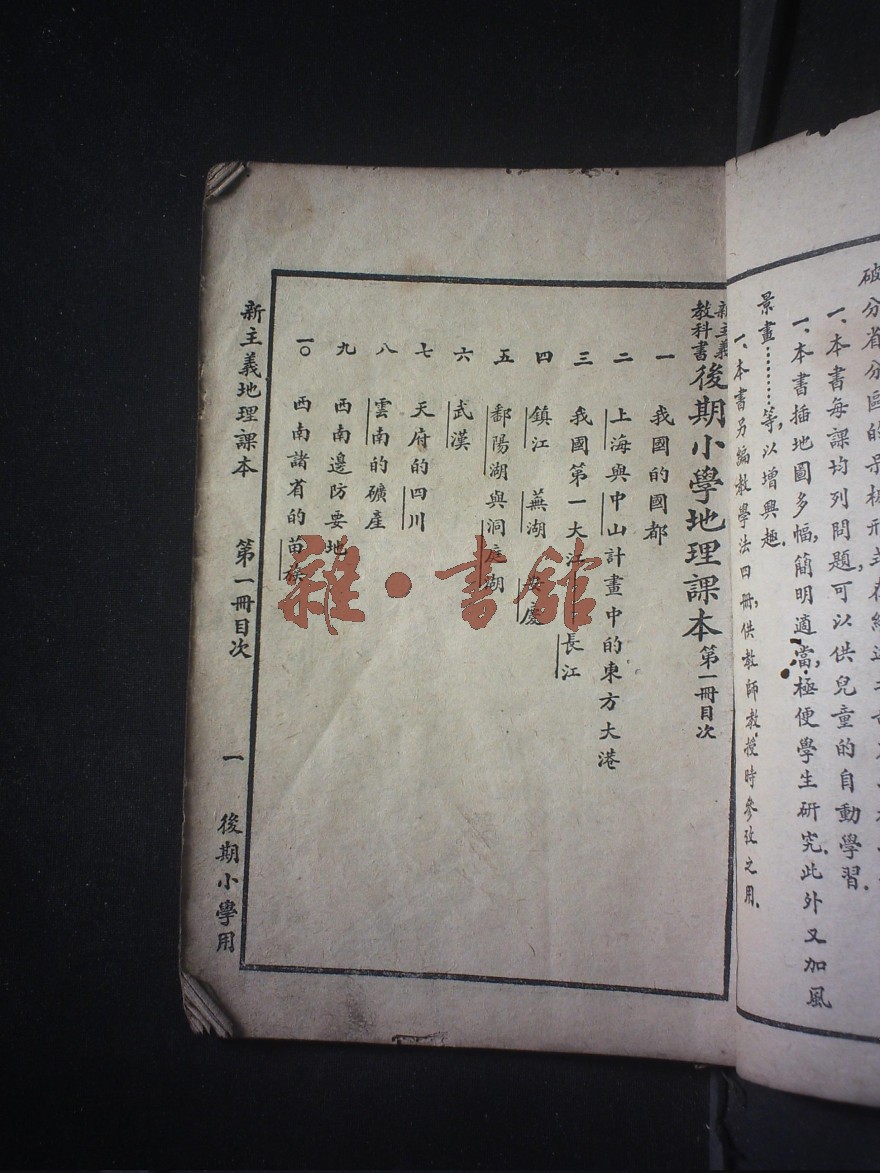 破分省分區的
一、本書每課均列問題,可以供兒童的自動學習.
一、本書插地圖多幅,簡明適當,極便學生研究.此外又加風
景畫………等,以增興趣.
一、本書另編教學法四冊,供教師教授時參攷之用.
新主義教科書後期小學地理課本第一冊目次
一 我國的國都
二 上海與中山計畫中的東方大港
三 我國第一大江——長江
四 鎮江 蕪湖 安慶
五 鄱陽湖與洞庭湖
六 武漢
七 天府的四川
八 雲南的礦產
九 西南邊防要地
一〇 西南諸省的苗族
新主義地理課本 第一冊目次 一 後期小學用
雜·書館